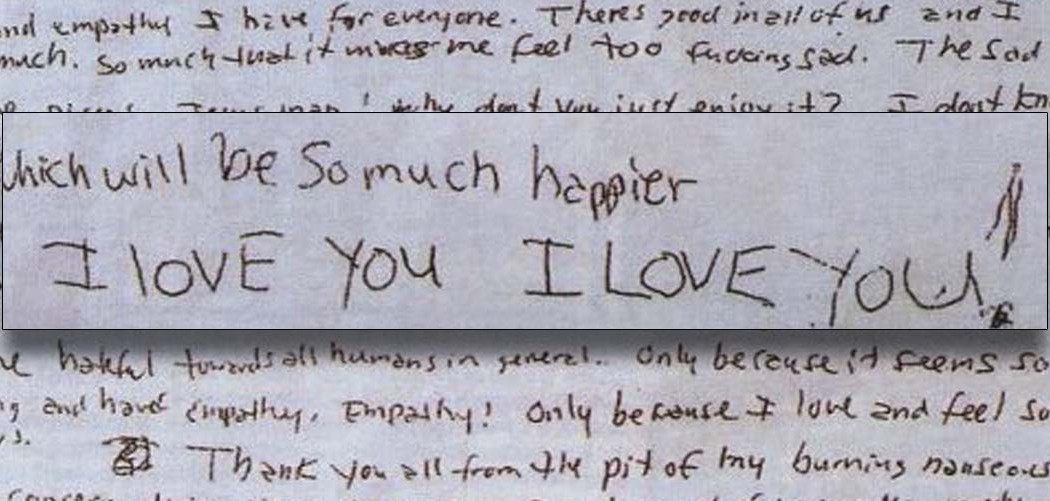 and empathy I have for everyone. There's good in all of us and I
much. So much that it makes me feel too fucking sad. The sad
why don't you just enjoy it? I dont kn
which will be so much happier
I LOVE YOU I LOVE YOU!
hateful towards all humans in general. Only because it seems so
and have empathy. Empathy! Only because I love and feel so
Thank you all from the pit of my burning nauseous